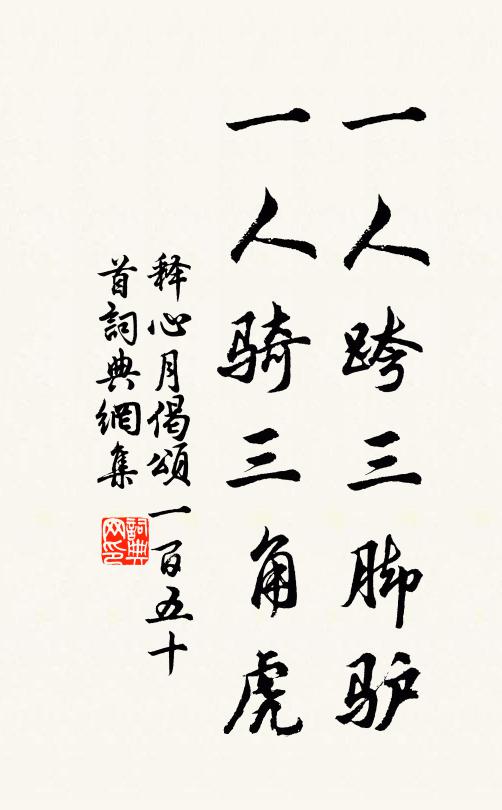 一人跨三脚驴
一人骑三角虎
释心月偈颂一百五十
首詞典網集
詞典
网印